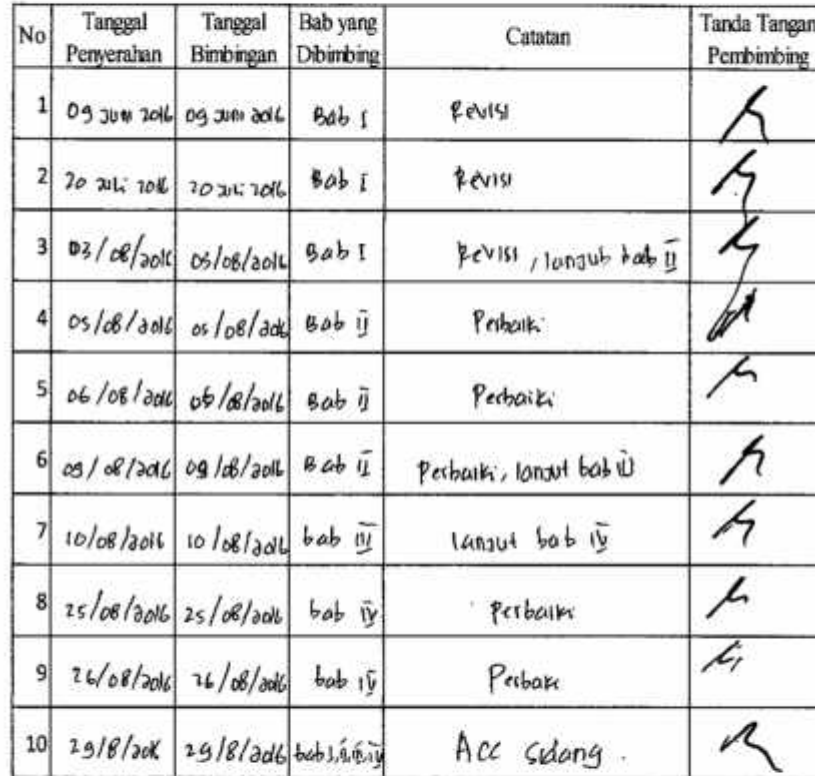 No Tanggal Penyerahan Tanggal Bimbingan Bab yang Dibimbing Catatan Tanda Tangan Pembimbing
1 09 Juni 2016 09 Juni 2016 Bab I Revisi
2 20 Juli 2016 20 Juli 2016 Bab I Revisi
3 03/08/2016 03/08/2016 Bab I Revisi, lanjut bab II
4 05/08/2016 05/08/2016 Bab II Perbaiki
5 06/08/2016 06/08/2016 Bab II Perbaiki
6 09/08/2016 09/08/2016 Bab II Perbaiki, lanjut bab III
7 10/08/2016 10/08/2016 bab III lanjut bab IV
8 25/08/2016 25/08/2016 bab IV Perbaiki
9 26/08/2016 26/08/2016 bab IV Perbaki
10 29/8/2016 29/8/2016 bab I, II, III, IV ACC sidang.